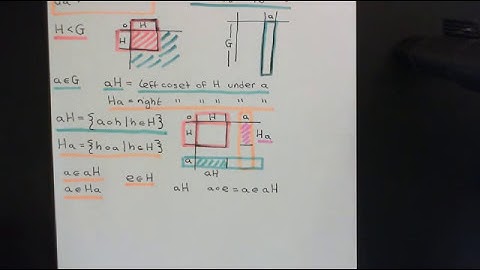 H<G
o H
H
a
G
a∈G
aH = left coset of H under a
Ha = right " " " " "
aH = {a∘h | h∈H}
Ha = {h∘a | h∈H}
o H a
H
Ha
a
aH
a∈aH
a∈Ha
e∈H
aH a∘e = a ∈ aH